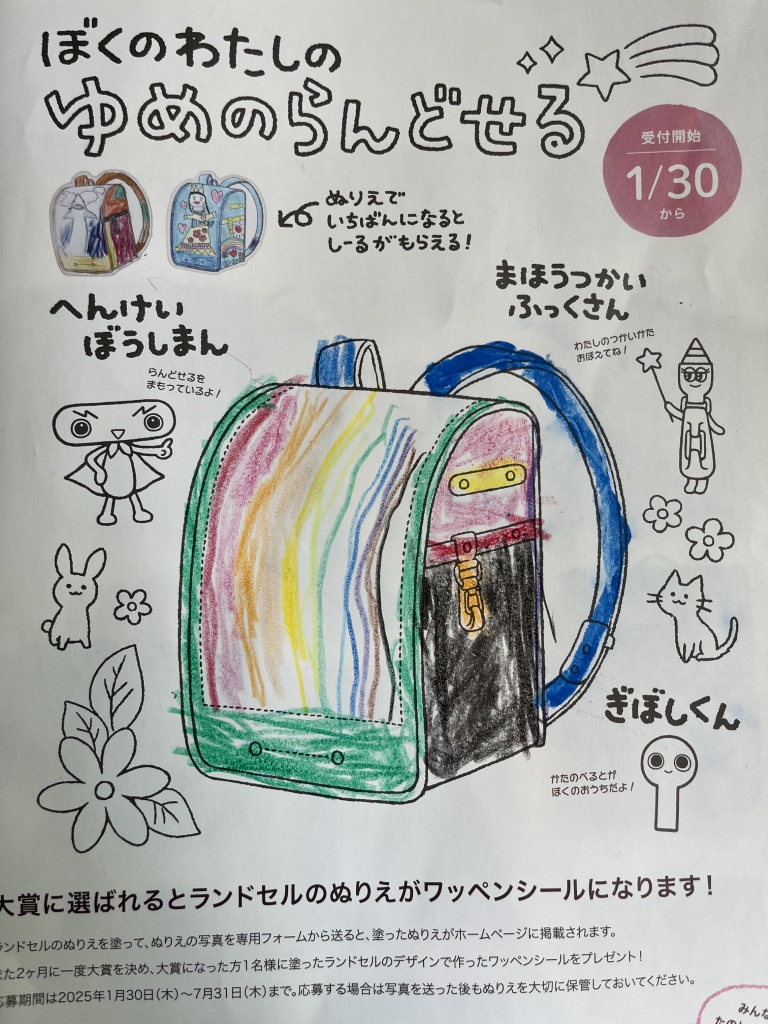 ぼくのわたしの
ゆめのらんどせる
受付開始
1/30
から
ぬりえで
いちばんになると
しーるがもらえる!
へんけい
ぼうしまん
らんどせるを
まもっているよ!
まほうつかい
ふっくさん
わたしのつかいかた
おぼえてね!
ぎぼしくん
かたのべるとが
ぼくのおうちだよ!
大賞に選ばれるとランドセルのぬりえがワッペンシールになります!
ランドセルのぬりえを塗って、ぬりえの写真を専用フォームから送ると、塗ったぬりえがホームページに掲載されます。
また2ヶ月に一度大賞を決め、大賞になった方1名様に塗ったランドセルのデザインで作ったワッペンシールをプレゼント!
応募期間は2025年1月30日(木)〜7月31日(木)まで。応募する場合は写真を送った後もぬりえを大切に保管しておいてください。
みんな